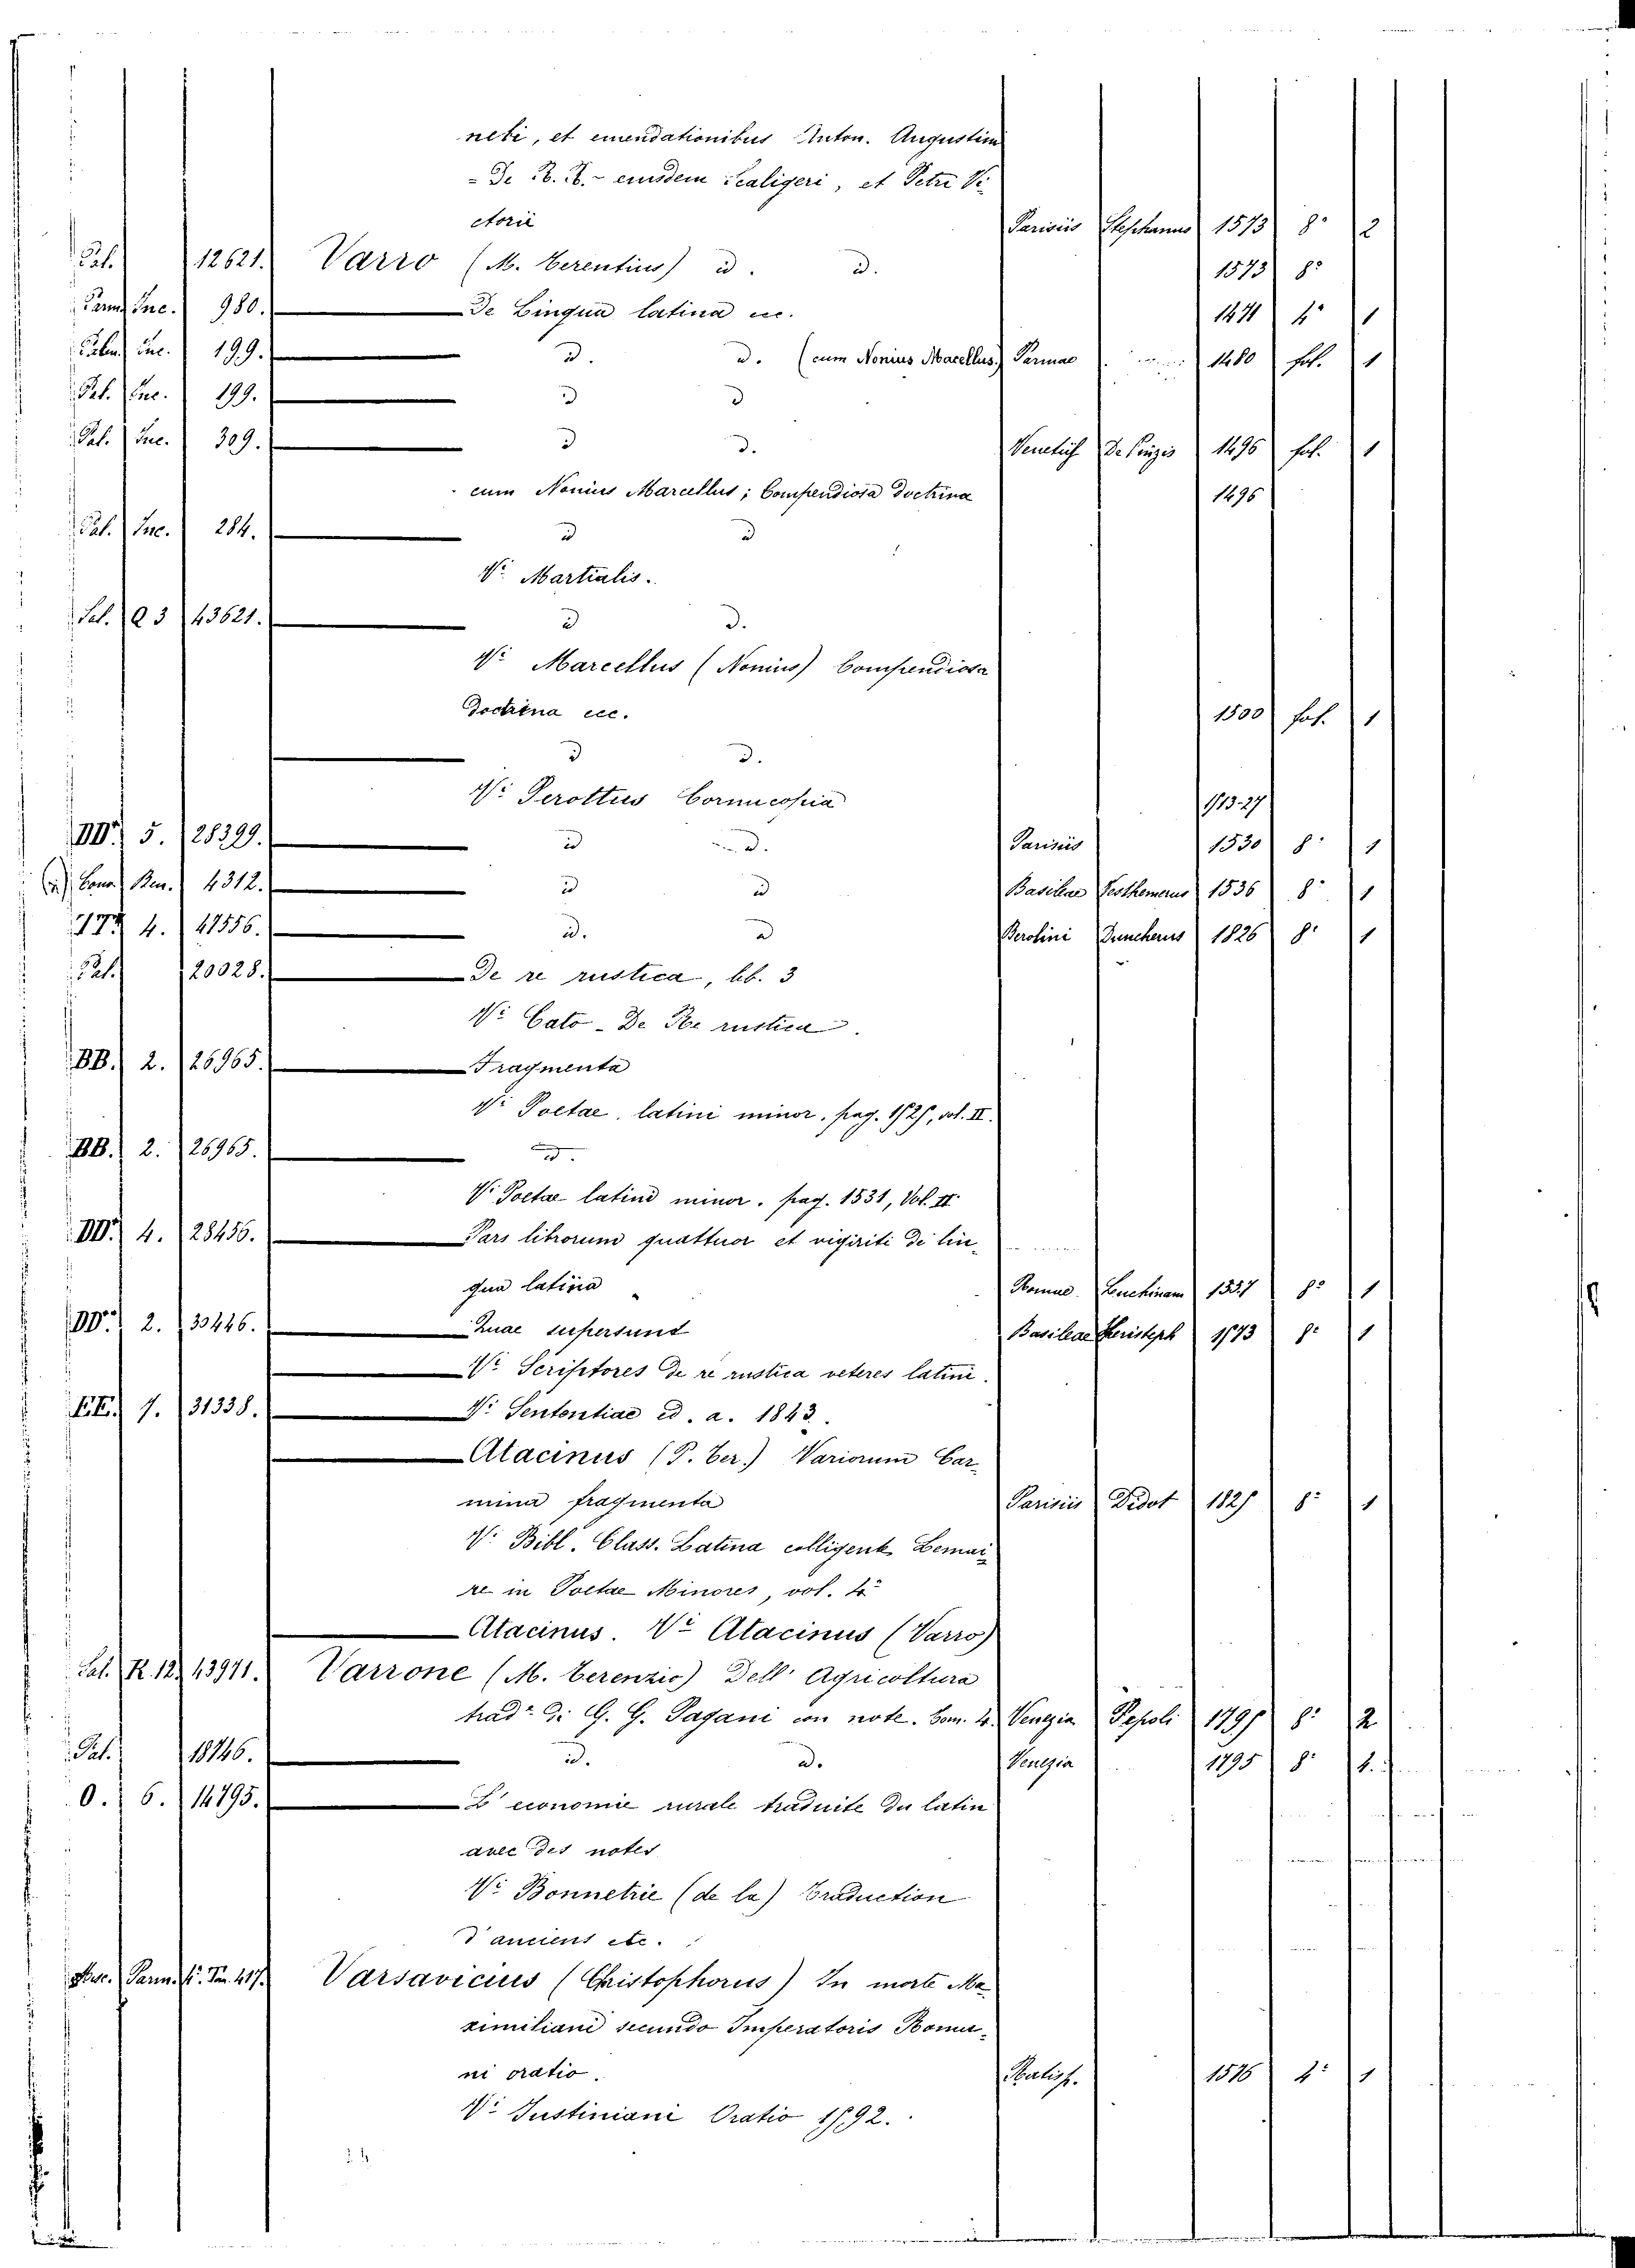 neti, et emendationibus Anton. Augustini
- De R. R. - eiusdem Scaligeri, et Petri Vi
ctorii Parisiis Stephanus 1573 8° 2
Pal. 12621. Varro (M. Terentius) id. id. 1573 8°
Parm. Inc. 980. De Lingua latina ec. 1471 4° 1
Inc. 199. id. id. (cum Nonius Macellus) Parmae 1480 fol. 1
Pal. Inc. 199. id id
Pal. Inc. 309. id id. Venetiis De 1496 fol. 1
cum Nonius Marcellus; Compendiosa doctrina 1496
Pal. Inc. 284. id id
Vi. Martialis.
Sal. Q 3 43621. id id.
Vi. Marcellus (Nonius) Compendiosa
Doctrina ecc. 1500 fol. 1
id id.
Vi. Perottus Cornucopia 1513-27
DD. 5. 28399. id id. Parisiis 1530 8° 1
Ben. 4312. id id Basileae Vesthemerus 1536 8° 1
4. 41556. id. id Berolini Duncherus 1826 8° 1
Pal. 20028. De re rustica, lib. 3
Vi. Cato - De Re rustica.
BB. 2. 26965. Fragmenta
Vi. Poetae latini minor. pag. 1727, vol. II.
BB. 2. 26965. id.
Vi. Poetae latini minor. pag. 1531, Vol. II
DD. 4. 28456. Pars librorum quattuor et viginti de lin-
gua latina Romae Luchinam 1557 8° 1
DD. 2. 30446. Quae supersunt Basileae Christoph 1773 8° 1
Vi. Scriptores de re rustica veteres latini.
EE. 7. 31338. Vi. Sententiae ed. a. 1843.
Atacinus (P. Ter.) Variorum Car-
mina fragmenta Parisiis Didot 1825 8° 1
V. Bibl. Class. Latina colligente Lemai-
re in Poetae Minores, vol. 4°
Atacinus. Vi. Atacinus (Varro)
Sal. R. 12. 43911. Varrone (M. Terenzio) Dell' Agricoltura
trad. di G. G. Pagani con note. Tom. 4. Venezia Pepoli 1797 8° 2
Pal. 18746. id. id. Venezia 1795 8° 4.
O. 6. 14795. L'economie rurale traduite du latin
avec des notes
Vi. Bonnetrie (de la) Traduction
d'anciens etc.
Misc. Parm. 417. Varsavicius (Christophorus) In morte Ma-
ximiliani secundo Imperatoris Roma-
ni oratio. 1576 4° 1
Vi. Justiniani Oratio 1592.